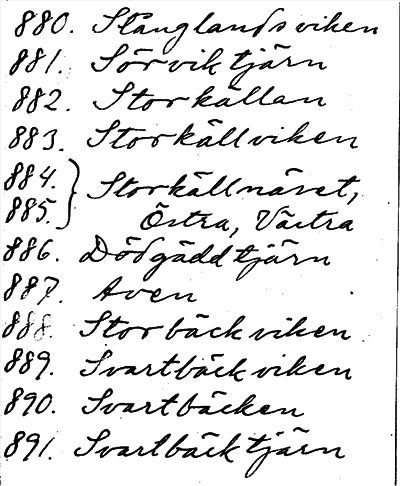 880. Stånglandsviken
881. Sörviktjärn
882. Storkällan
883. Storkällviken
884. } Storkällnäset,
885. Östra, Västra
886. Dödgäddtjärn
887. Aven
888. Storbäckviken
889. Svartbäckviken
890. Svartbäcken
891. Svartbäcktjärn